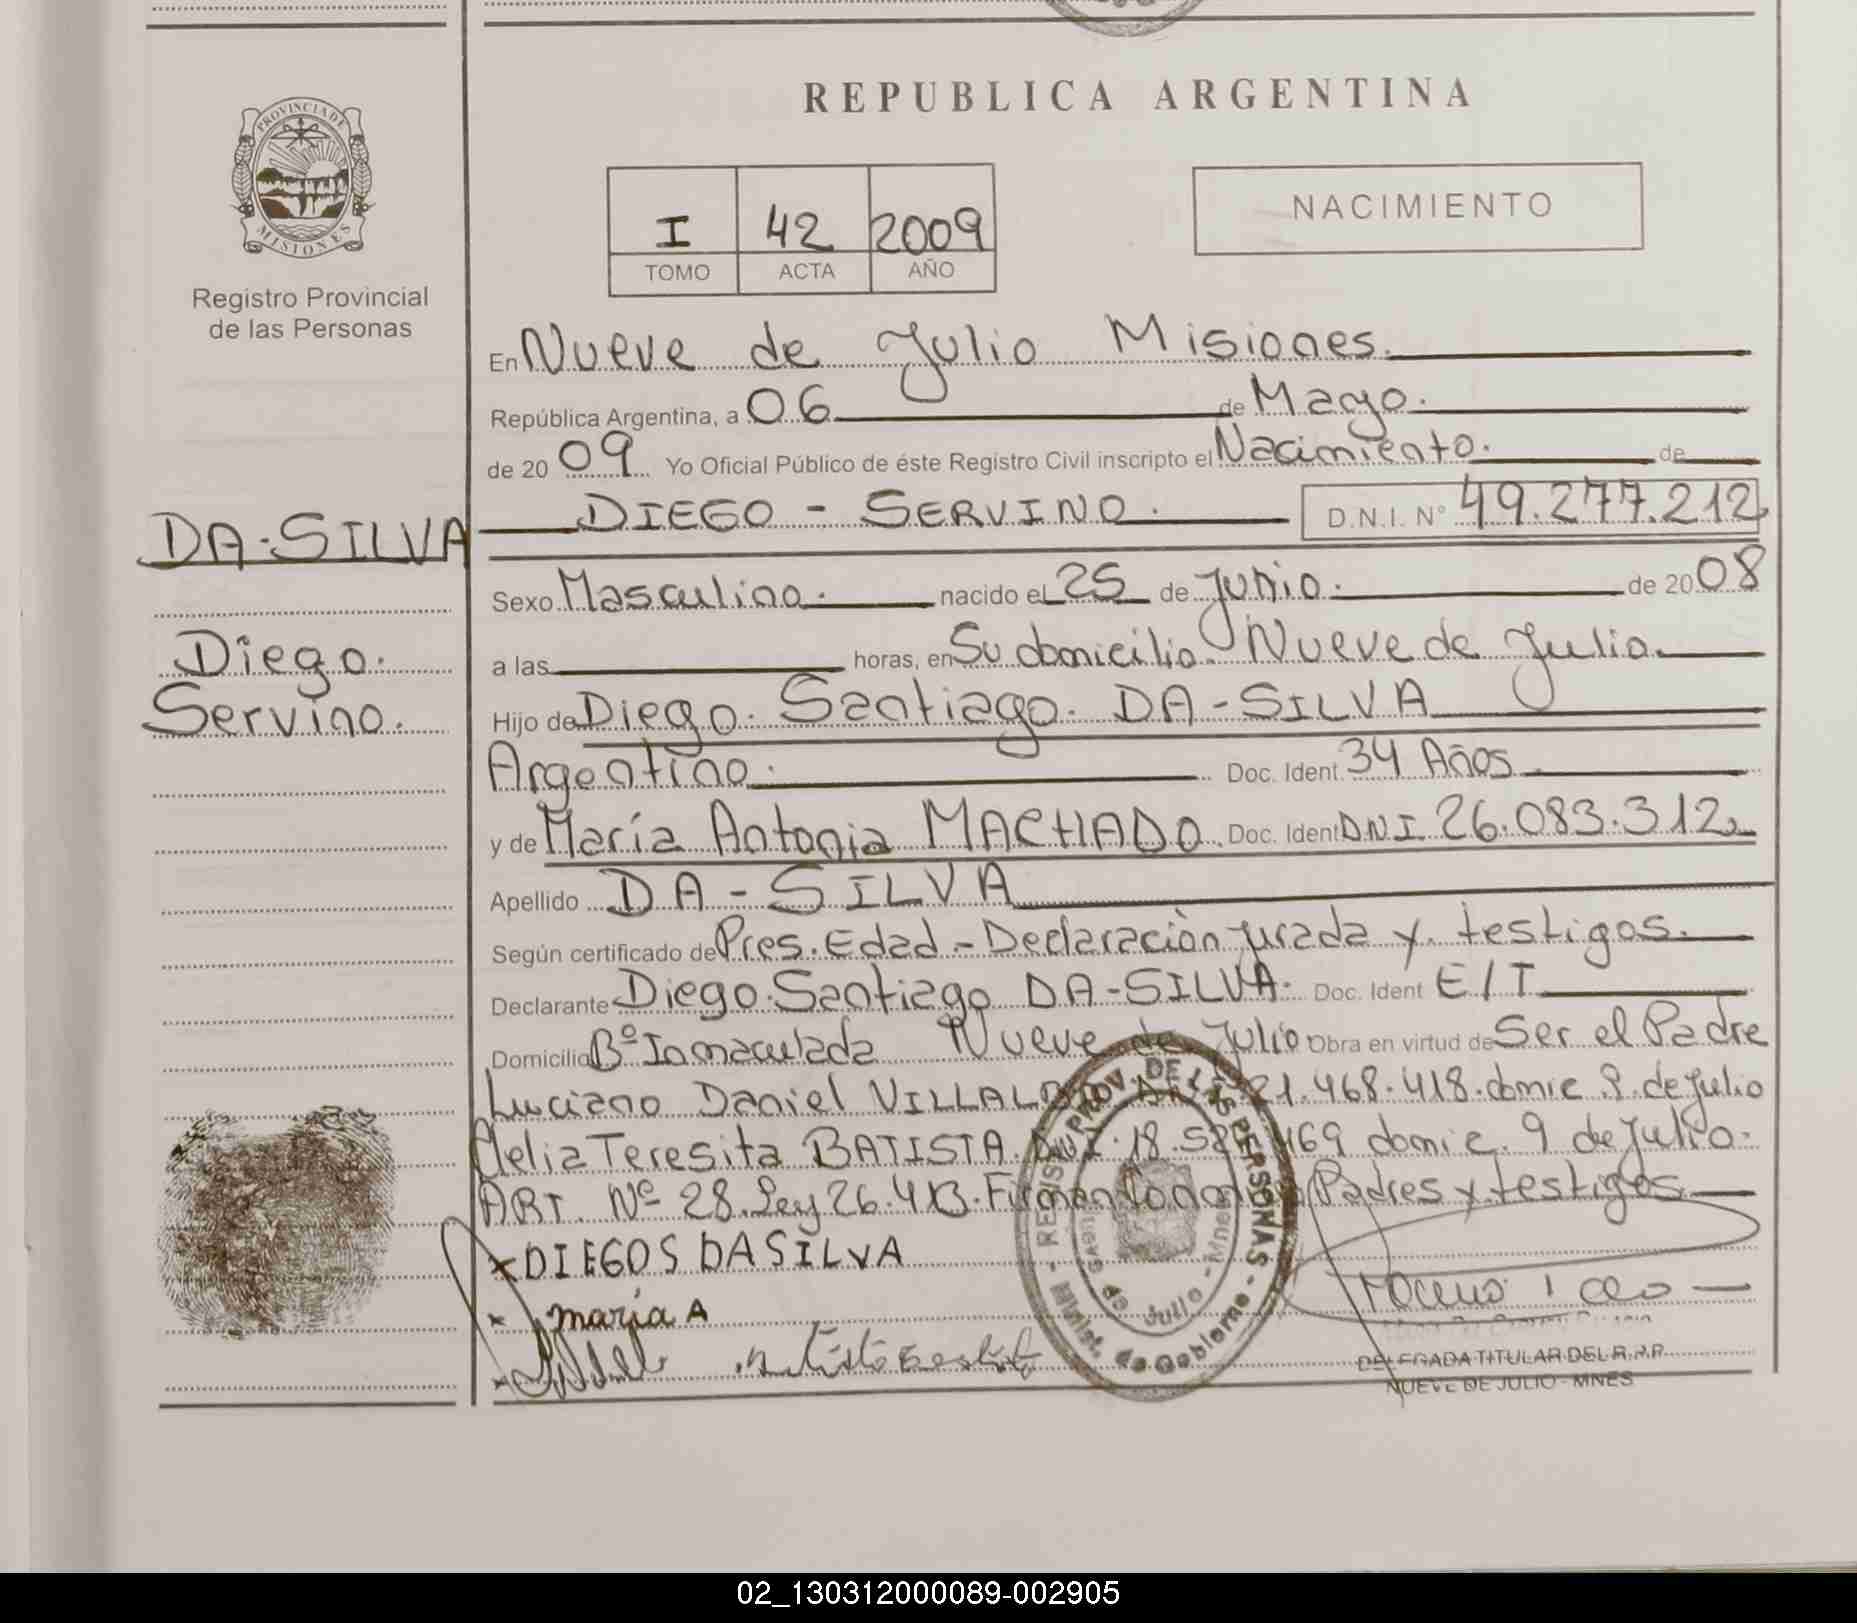 REPUBLICA ARGENTINA
PROVINCIA DE
MISIONES
Registro Provincial
de las Personas
I 42 2009
TOMO ACTA AÑO
NACIMIENTO
En Nueve de Julio Misiones.
República Argentina, a 06 de Mayo.
de 20 09 Yo Oficial Público de éste Registro Civil inscripto el Nacimiento. de
DIEGO - SERVINO. D.N.I. N° 49.277.212
DA-SILVA
Diego.
Servino.
Sexo Masculino. nacido el 25 de Junio. de 20 08
a las horas, en Su domicilio. Nueve de Julio.
Hijo de Diego. Santiago. DA-SILVA
Argentino. Doc. Ident. 34 Años
y de María Antonia MACHADO. Doc. Ident DNI 26.083.312
Apellido DA-SILVA
Según certificado de Pres. Edad.- Declaración jurada y testigos.
Declarante Diego. Santiago DA-SILVA. Doc. Ident E/T
Domicilio Bº Inmaculada Nueve de Julio Obra en virtud de Ser el Padre
Luciano Daniel 21.468.418. domic. 9. de Julio
Teresita BATISTA. 18. 169 domic. 9 de Julio.
ART. Nº 28. Ley 26.413. Padres y testigos
DIEGO S DASILVA
maria A
PROV. DE LAS PERSONAS
Minist. de Gobierno
Nueve de Julio - Mnes
DELEGADA TITULAR DEL R.P.P.
NUEVE DE JULIO - MNES
02_130312000089-002905